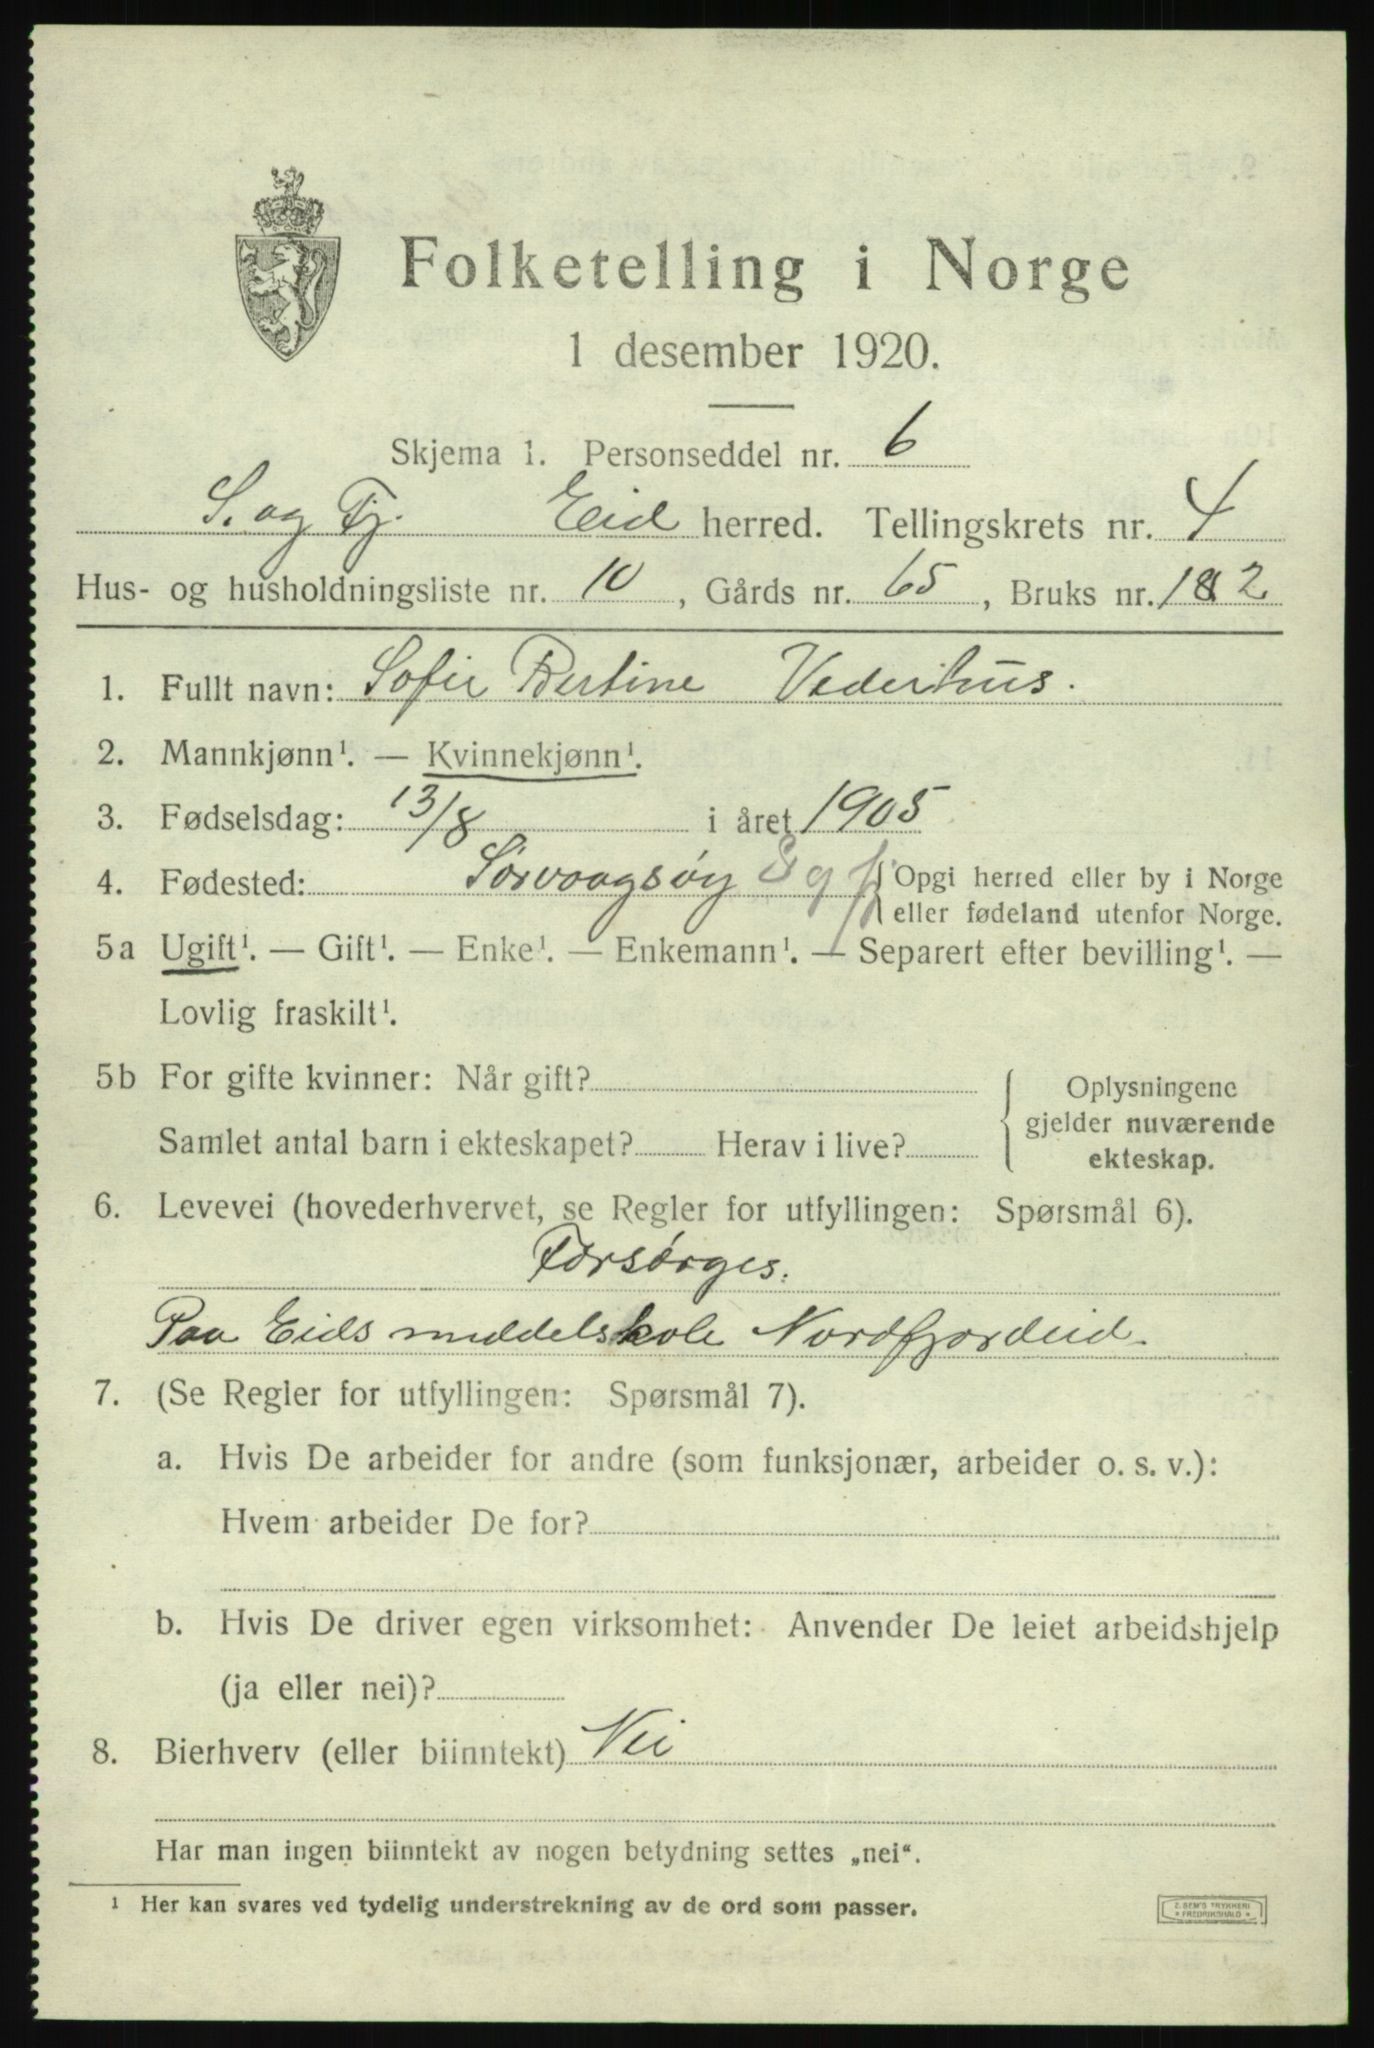 Folketelling i Norge
1 desember 1920.
Skjema 1. Personseddel nr. 6
S. og Fj. Eid herred. Tellingskrets nr. 4
Hus- og husholdningsliste nr. 10, Gårds nr. 65, Bruks nr. 182
1. Fullt navn: Sofie Bertine Vederhus.
2. Mannkjønn¹. — Kvinnekjønn¹.
3. Fødselsdag: 13/8 i året 1905
4. Fødested: Sörvaagsöy S g fj Opgi herred eller by i Norge
eller fødeland utenfor Norge.
5a Ugift¹. — Gift¹. — Enke¹. — Enkemann¹. — Separert efter bevilling¹. —
Lovlig fraskilt¹.
5b For gifte kvinner: Når gift?
Samlet antal barn i ekteskapet? Herav i live?
Oplysningene
gjelder nuværende
ekteskap.
6. Levevei (hovederhvervet, se Regler for utfyllingen: Spørsmål 6).
Forsörges.
Paa Eids middelskole Nordfjordeid.
7. (Se Regler for utfyllingen: Spørsmål 7).
a. Hvis De arbeider for andre (som funksjonær, arbeider o. s. v.):
Hvem arbeider De for?
b. Hvis De driver egen virksomhet: Anvender De leiet arbeidshjelp
(ja eller nei)?
8. Bierhverv (eller biinntekt) Nei
Har man ingen biinntekt av nogen betydning settes „nei“.
¹ Her kan svares ved tydelig understrekning av de ord som passer.
E. SEM'S TRYKKERI
* FREDRIKSHALD *